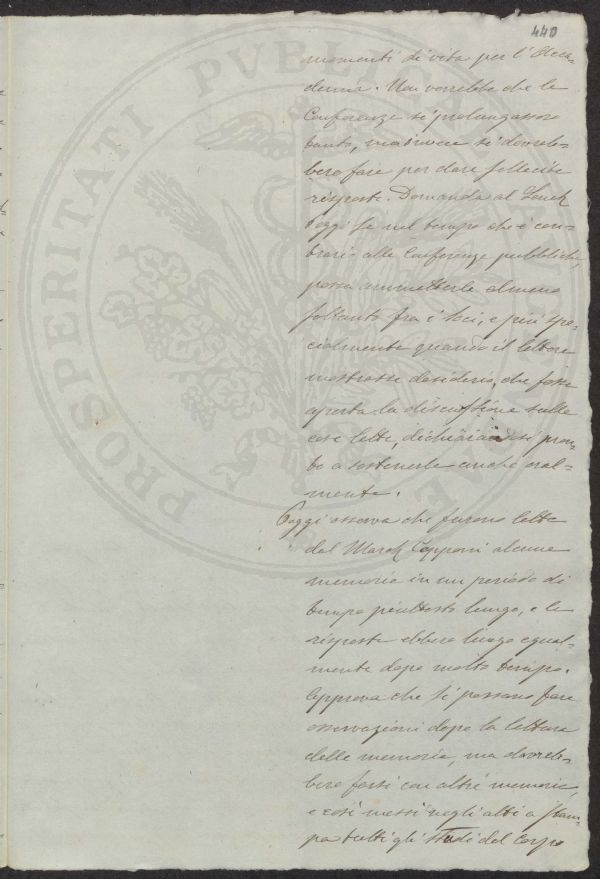 440
momenti di vita per l'Acca-
demia. Non vorrebbe che le
Conferenze si prolungassero
tanto, ma invece si dovreb-
bero fare per dare sollecite
risposte. Domanda al
Poggi se nel tempo che è con-
trario alle Conferenze pubbliche,
possa ammetterle almeno
soltanto fra i Soci, e più spe-
cialmente quando il lettore
mostrasse desiderio, che fosse
aperta la discussione sulle
cose lette, dichiarandosi pron-
to a sostenerle anche oral-
mente.
Poggi osserva che furono lette
dal March Capponi alcune
memorie in un periodo di
tempo piuttosto lungo, e le
risposte ebbero luogo egual-
mente dopo molto tempo.
Approva che si possano fare
osservazioni dopo la lettura
delle memorie, ma dovreb-
bero farsi con altre memorie,
e così messi negli atti a stam-
pa tutti gli studi del Corpo
PROSPERITATI PUBLICAE AUGENDAE